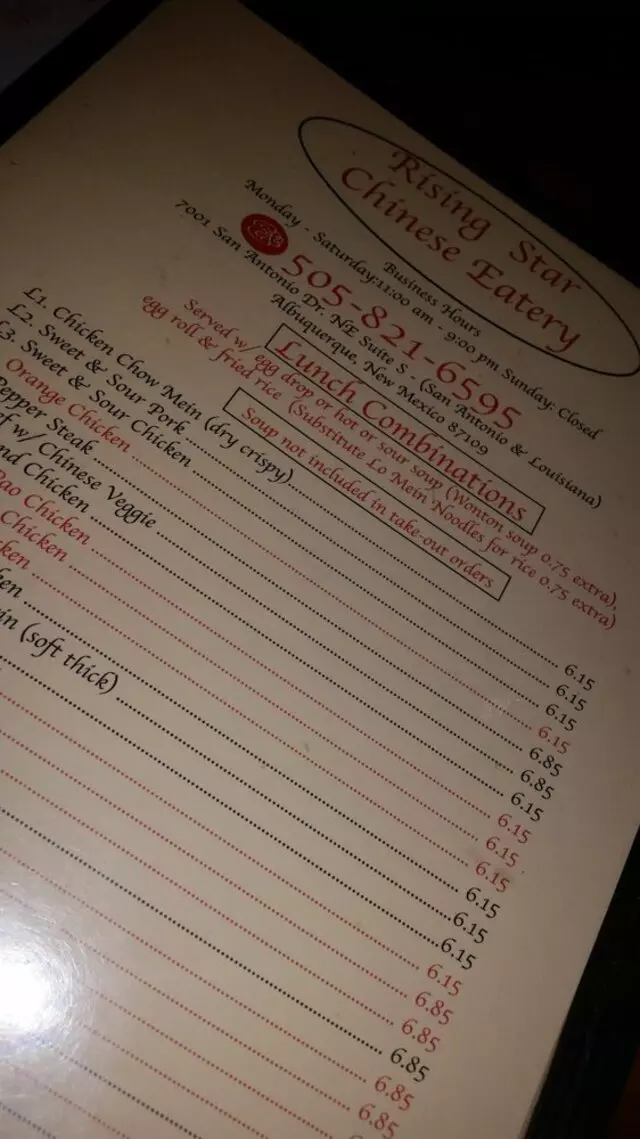 Rising Star
Chinese Eatery
Business Hours
Monday - Saturday:11:00 am - 9:00 pm Sunday: Closed
505-821-6595
7001 San Antonio Dr. NE Suite S - (San Antonio & Louisiana)
Albuquerque, New Mexico 87109
Lunch Combinations
Served w/ egg drop or hot or sour soup (Wonton soup 0.75 extra),
egg roll & fried rice (Substitute Lo Mein Noodles for rice 0.75 extra)
Soup not included in take-out orders
L1. Chicken Chow Mein (dry crispy) 6.15
L2. Sweet & Sour Pork 6.15
L3. Sweet & Sour Chicken 6.15
Orange Chicken 6.15
Pepper Steak 6.85
w/ Chinese Veggie 6.85
Chicken 6.15
Chicken 6.15
Chicken 6.15
6.15
6.15
(soft thick) 6.15
6.15
6.15
6.85
6.85
6.85
6.85
6.85